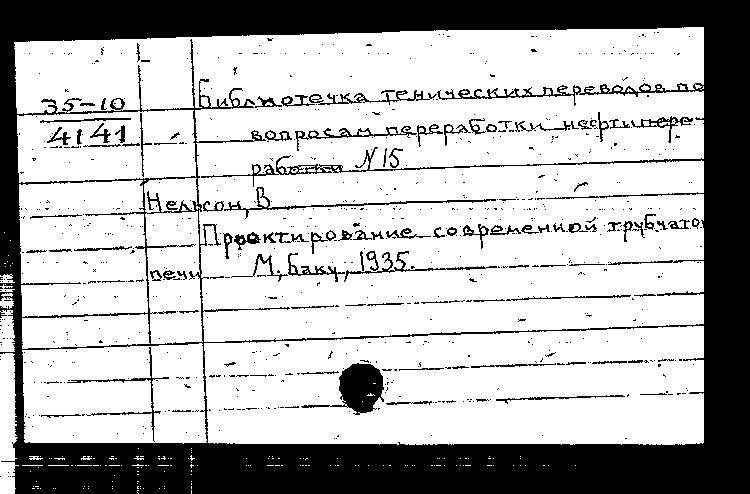 35-10
4141
Библиотечка тенических переводов по
вопросам переработки нефти пере-
работки N 15
Нельсон, В
Проектирование современной трубчато
печи М, Баку, 1935.